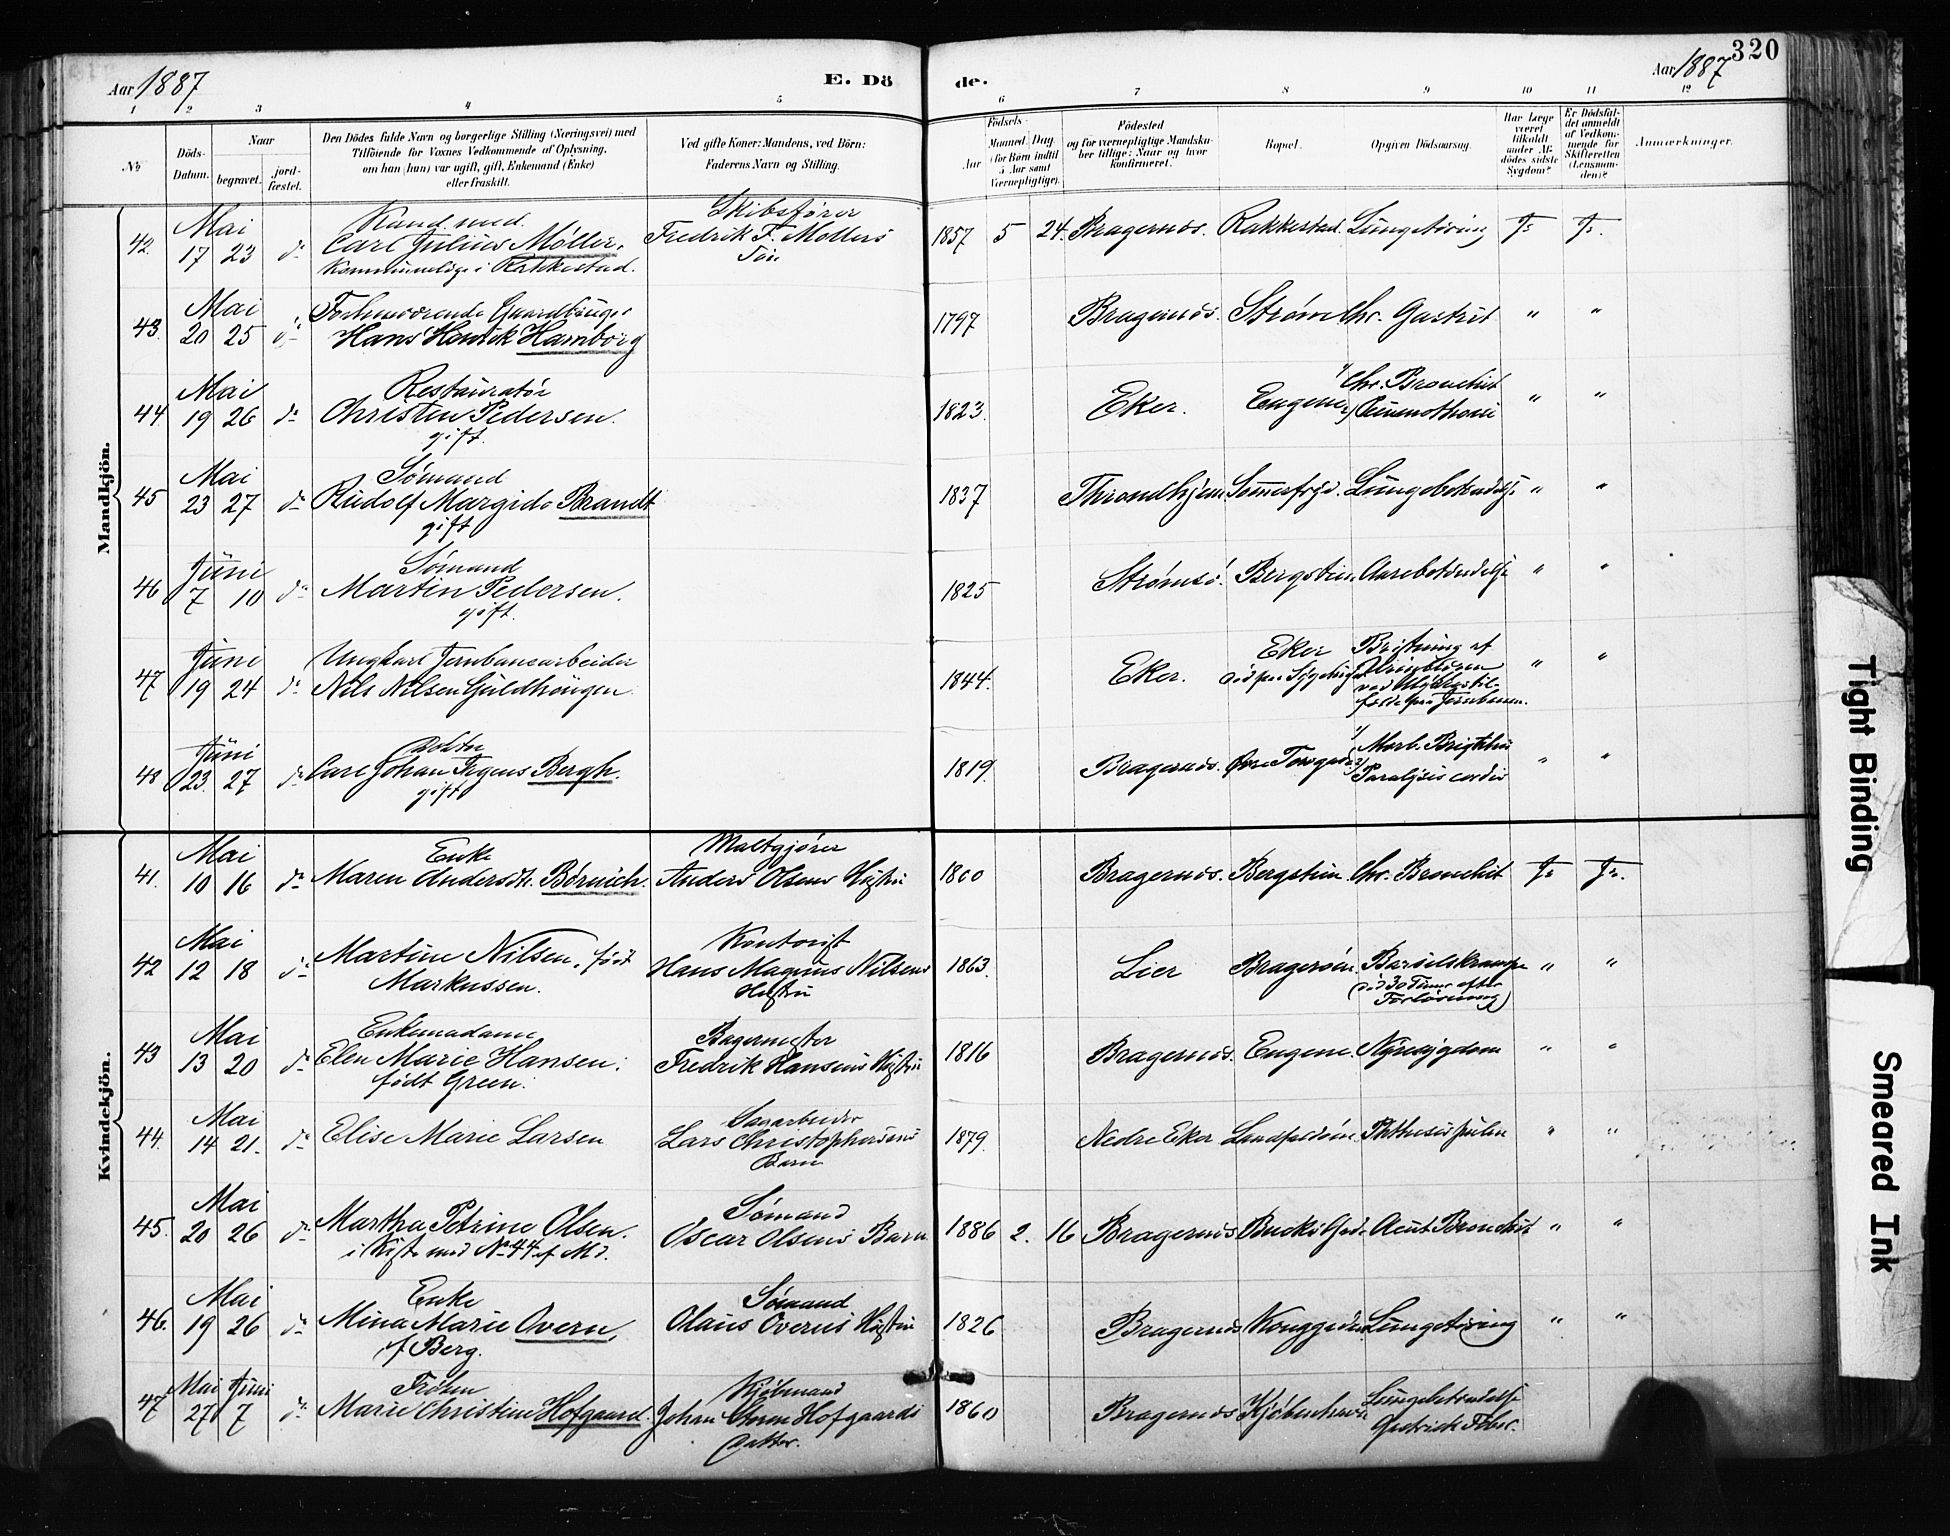 320
Aar 1887
E. Dö
de.
Aar 1887
1 2 3 4 5 6 7 8 9 10 11 12
No.
Döds-Datum.
Naar
begravet.
jord-fæstet.
Den Dödes fulde Navn og borgerlige Stilling (Næringsvei) med
Tilföiende for Voxnes Vedkommende af Oplysning,
om han (hun) var ugift, gift, Enkemand (Enke)
eller fraskilt.
Ved gifte Koner: Mandens, ved Börn:
Faderens Navn og Stilling.
Födsels-
Aar
Maaned. Dag.
(for Börn indtil
5 Aar samt
Værnepligtige).
Födested
og for værnepligtige Mandskaber tillige: Naar og hvor
konfirmeret.
Bopæl.
Opgiven Dödsaarsag.
Har Læge
været
tilkaldt
under Afdödes sidste
Sygdom?
Er Dödsfaldet anmeldt
af Vedkommende for
Skifteretten
(Lensmanden)?
Anmærkninger.
Mandkjön.
Mai Kand. med. Skibsfører
42. 17 23 do Carl Julius Møller, Fredrik F. Møllers 1857 5 24. Bragernæs. Rakkestad. Lungetæring Ja Ja.
Kommunelæge i Rakkestad. Søn
Mai Forhenværende Gaardbruger
43. 20 25 do Hans Henrik Hamborg 1797 Bragernæs. Strøm Chr. Gastrit " "
Mai Restauratør 1) Chr. Bronchit
44. 19 26 do Christen Pedersen. 1823. Eker. Engene 2) " "
gift.
Mai Sømand
45 23 27 do Rudolf Margido Brandt 1837 Throndhjem Lungebetændelse " "
gift
Juni Sømand
46 7 10 do Martin Pedersen. 1825 Strømsø. Bergstien. Aarebetændelse " "
gift.
Juni Ungkarl Jernbanearbeider Eker Bristning af
47 19 24 do Nils Nilsen Guldhaugen 1844. Eker. død paa Sygehuset Urinblæren " "
ved Ulykkestil-
fælde paa Jernbanen.
Juni Doktor 1) Morb. Brightii
48 23. 27 do Carl Johan Bergh. 1819. Bragernæs. Øvre Torvgade 2) Paralysis cordis " "
gift
Kvindekjön.
Mai Enke Maltgjører
41. 10 16 do Maren Andersdt. Børnich. Anders Olsens Hustru 1800 Bragernæs. Bergstien. Chr. Bronchit Ja Ja.
Mai Kontorist
42 12 18 do Martine Nilsen, født Hans Magnus Nilsens 1863. Lier Bragerøen. Barselskrampe " "
Markussen. Hustru (død 30 Timer efter
Forløsning)
Mai Enkemadame Bagermester
43 13 20 do Elen Marie Hansen. Fredrik Hansens Hustru 1816 Bragernæs. Engene. Nyresygdom " "
født Green.
Mai Sagarbeider
44. 14 21. do Elise Marie Larsen Lars Christophersens 1879. Nedre Eker Landfaldøen. Phthisis pulm " "
Barn
Mai Sømand
45. 20 26 do Martha Petrine Olsen. Oscar Olsens Barn 1886 2. 16 Bragernæs Acut Bronchit " "
i Kiste med No 44 af Md.
Mai Enke Sømand
46. 19 26 do Mina Marie Overn, Olaus Overns Hustru 1826 Bragernæs Konggaden Lungetæring " "
f. Berg.
Mai Juni Frøken Kjøbmand Lungebetændelse
47 27 7 do Marie Christine Hofgaard. Johan Hofgaards 1860 Bragernæs Kjøbenhavn Gastrisk Feber.
Datter.
Tight Binding
Smeared Ink